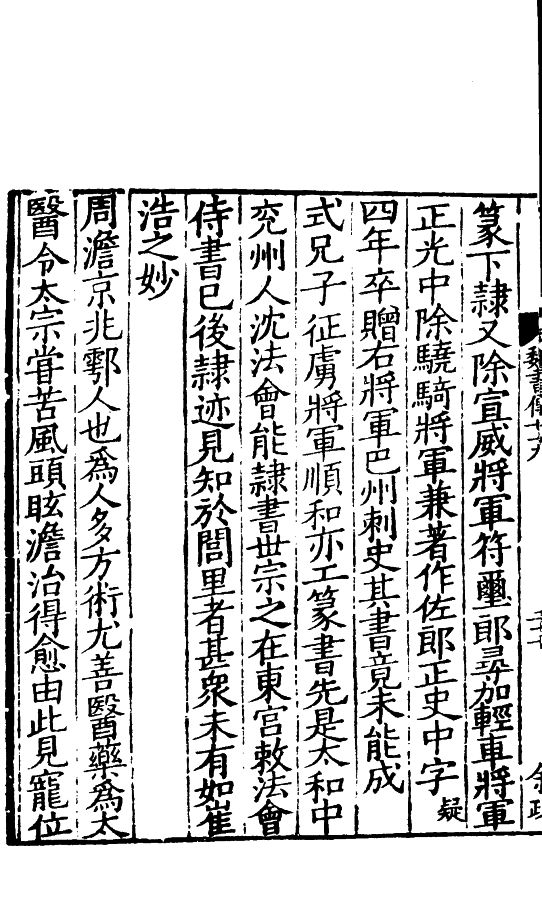 魏書傳七十九
篆下隷又除宣威將軍符璽郎尋加輕車將軍
正光中除驍騎將軍兼著作佐郎正史中字疑
四年卒贈右將軍巴州刺史其書竟未能成
式兄子征虜將軍順和亦工篆書先是太和中
兖州人沈法會能隷書世宗之在東宫敕法會
侍書已後隷迹見知於閭里者甚衆未有如崔
浩之妙
周澹京兆鄠人也爲人多方術尤善醫藥爲太
醫令太宗甞苦風頭眩澹治得愈由此見寵位